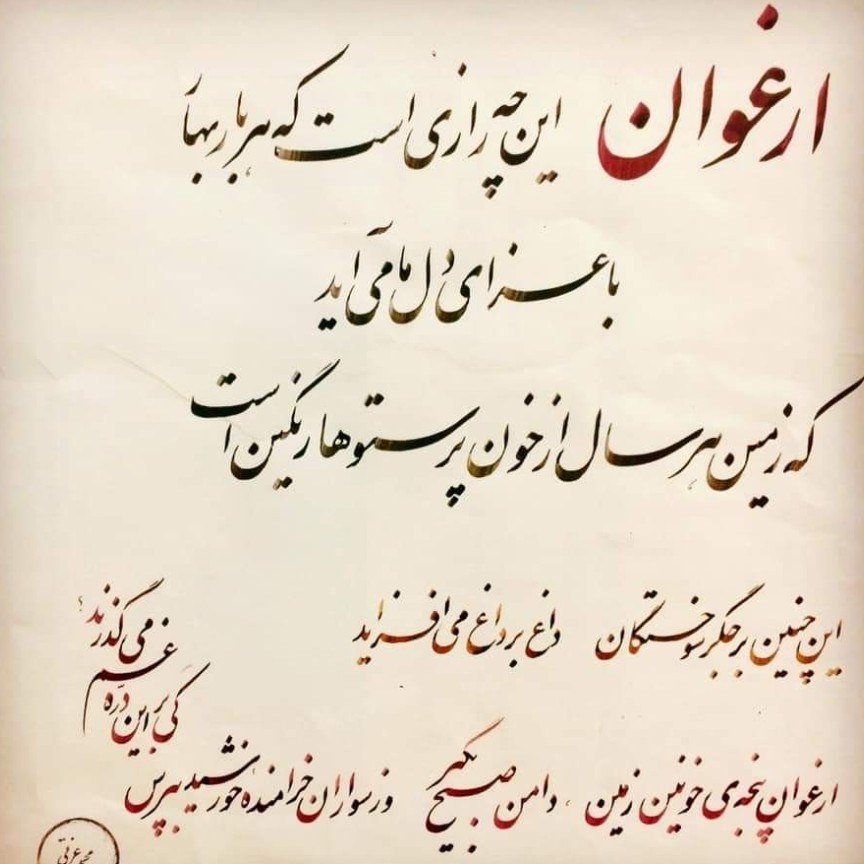 ارغوان این چه رازی است که هر بار بهار
با عزای دل ما می آید
که زمین هر سال از خون پرستوها رنگین است
این چنین بر جگر سوختگان داغ بر داغ می افزاید
ارغوان پنجه ی خونین زمین ، دامن صبح بگیر وز سواران خرامندهٔ خورشید بپرس
کی بر این درّه غم می گذرند؟